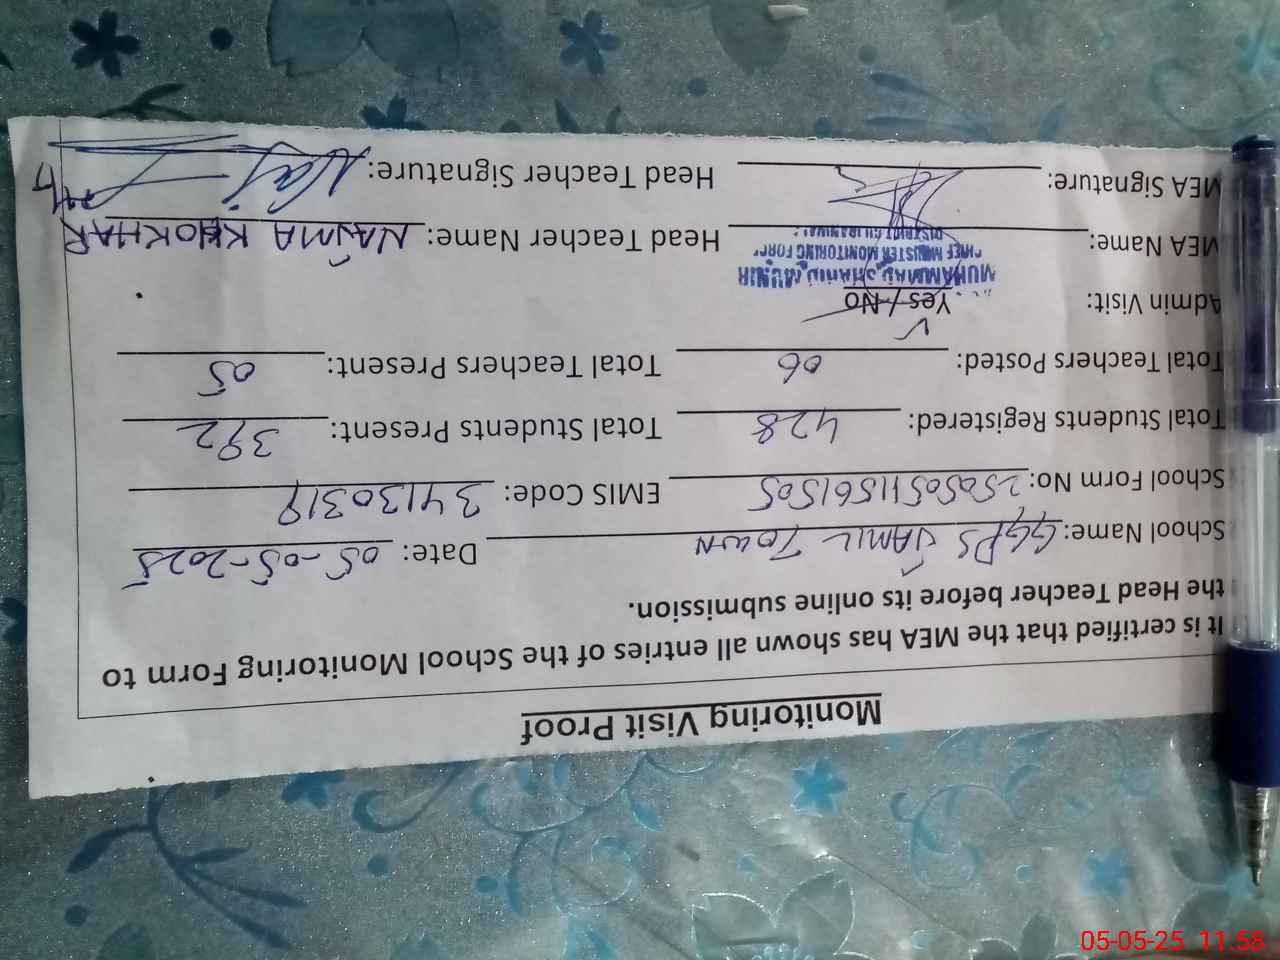 Monitoring Visit Proof
It is certified that the MEA has shown all entries of the School Monitoring Form to
the Head Teacher before its online submission.
School Name: GGPS JAMIL TOWN Date: 05-05-2025
School Form No: 25050511561505 EMIS Code: 34130319
Total Students Registered: 428 Total Students Present: 392
Total Teachers Posted: 06 Total Teachers Present: 05
Admin Visit: Yes / No
MUHAMMAD SHAHID MUNIR
CHIEF MINISTER MONITORING FORCE
DISTRICT GUJRANWALA
MEA Name: Head Teacher Name: NAJMA KHOKHAR
MEA Signature: Head Teacher Signature: Naj
05-05-25 11:58